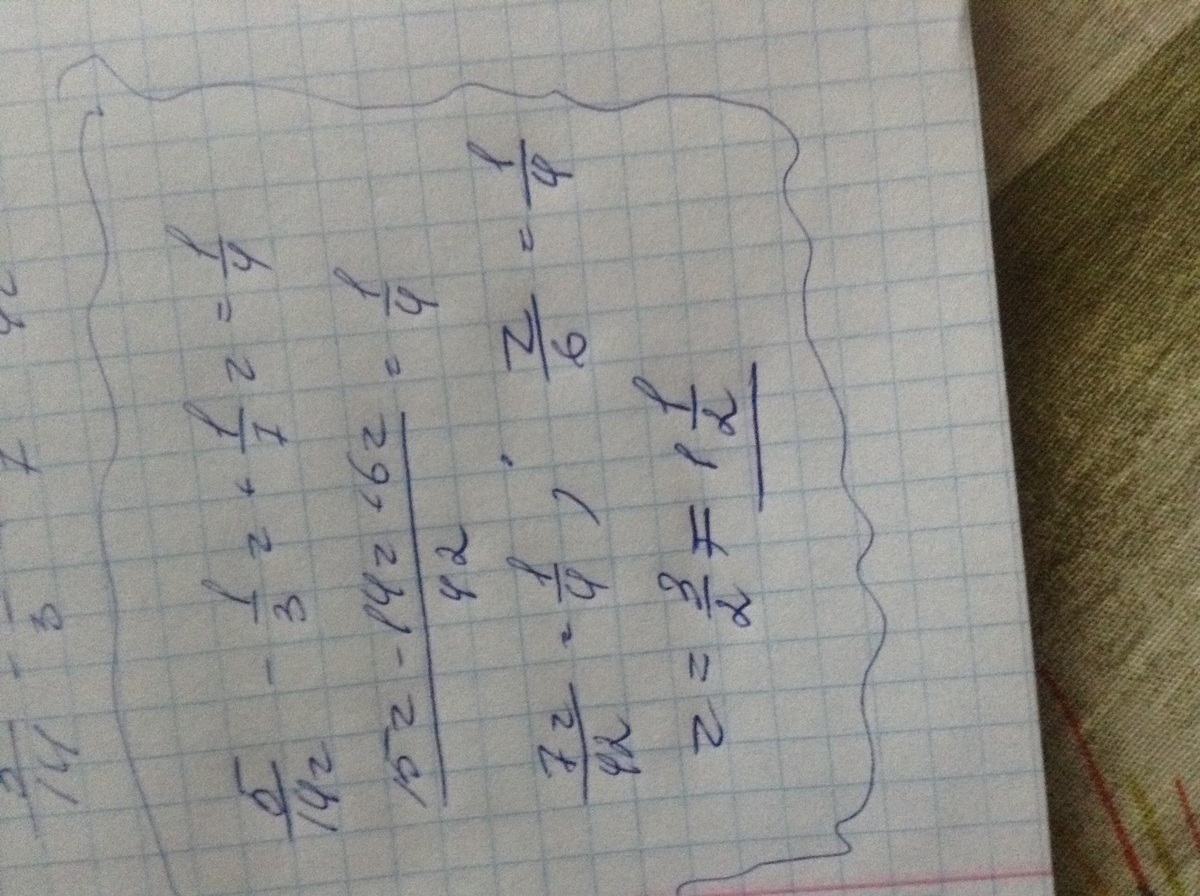 5/14z - 1/3 z + 1/7 z = 1/4
(15z - 14z + 6z)/42 = 1/4
7z/42 = 1/4 ; z/6 = 1/4
z = 3/2 = 1 1/2